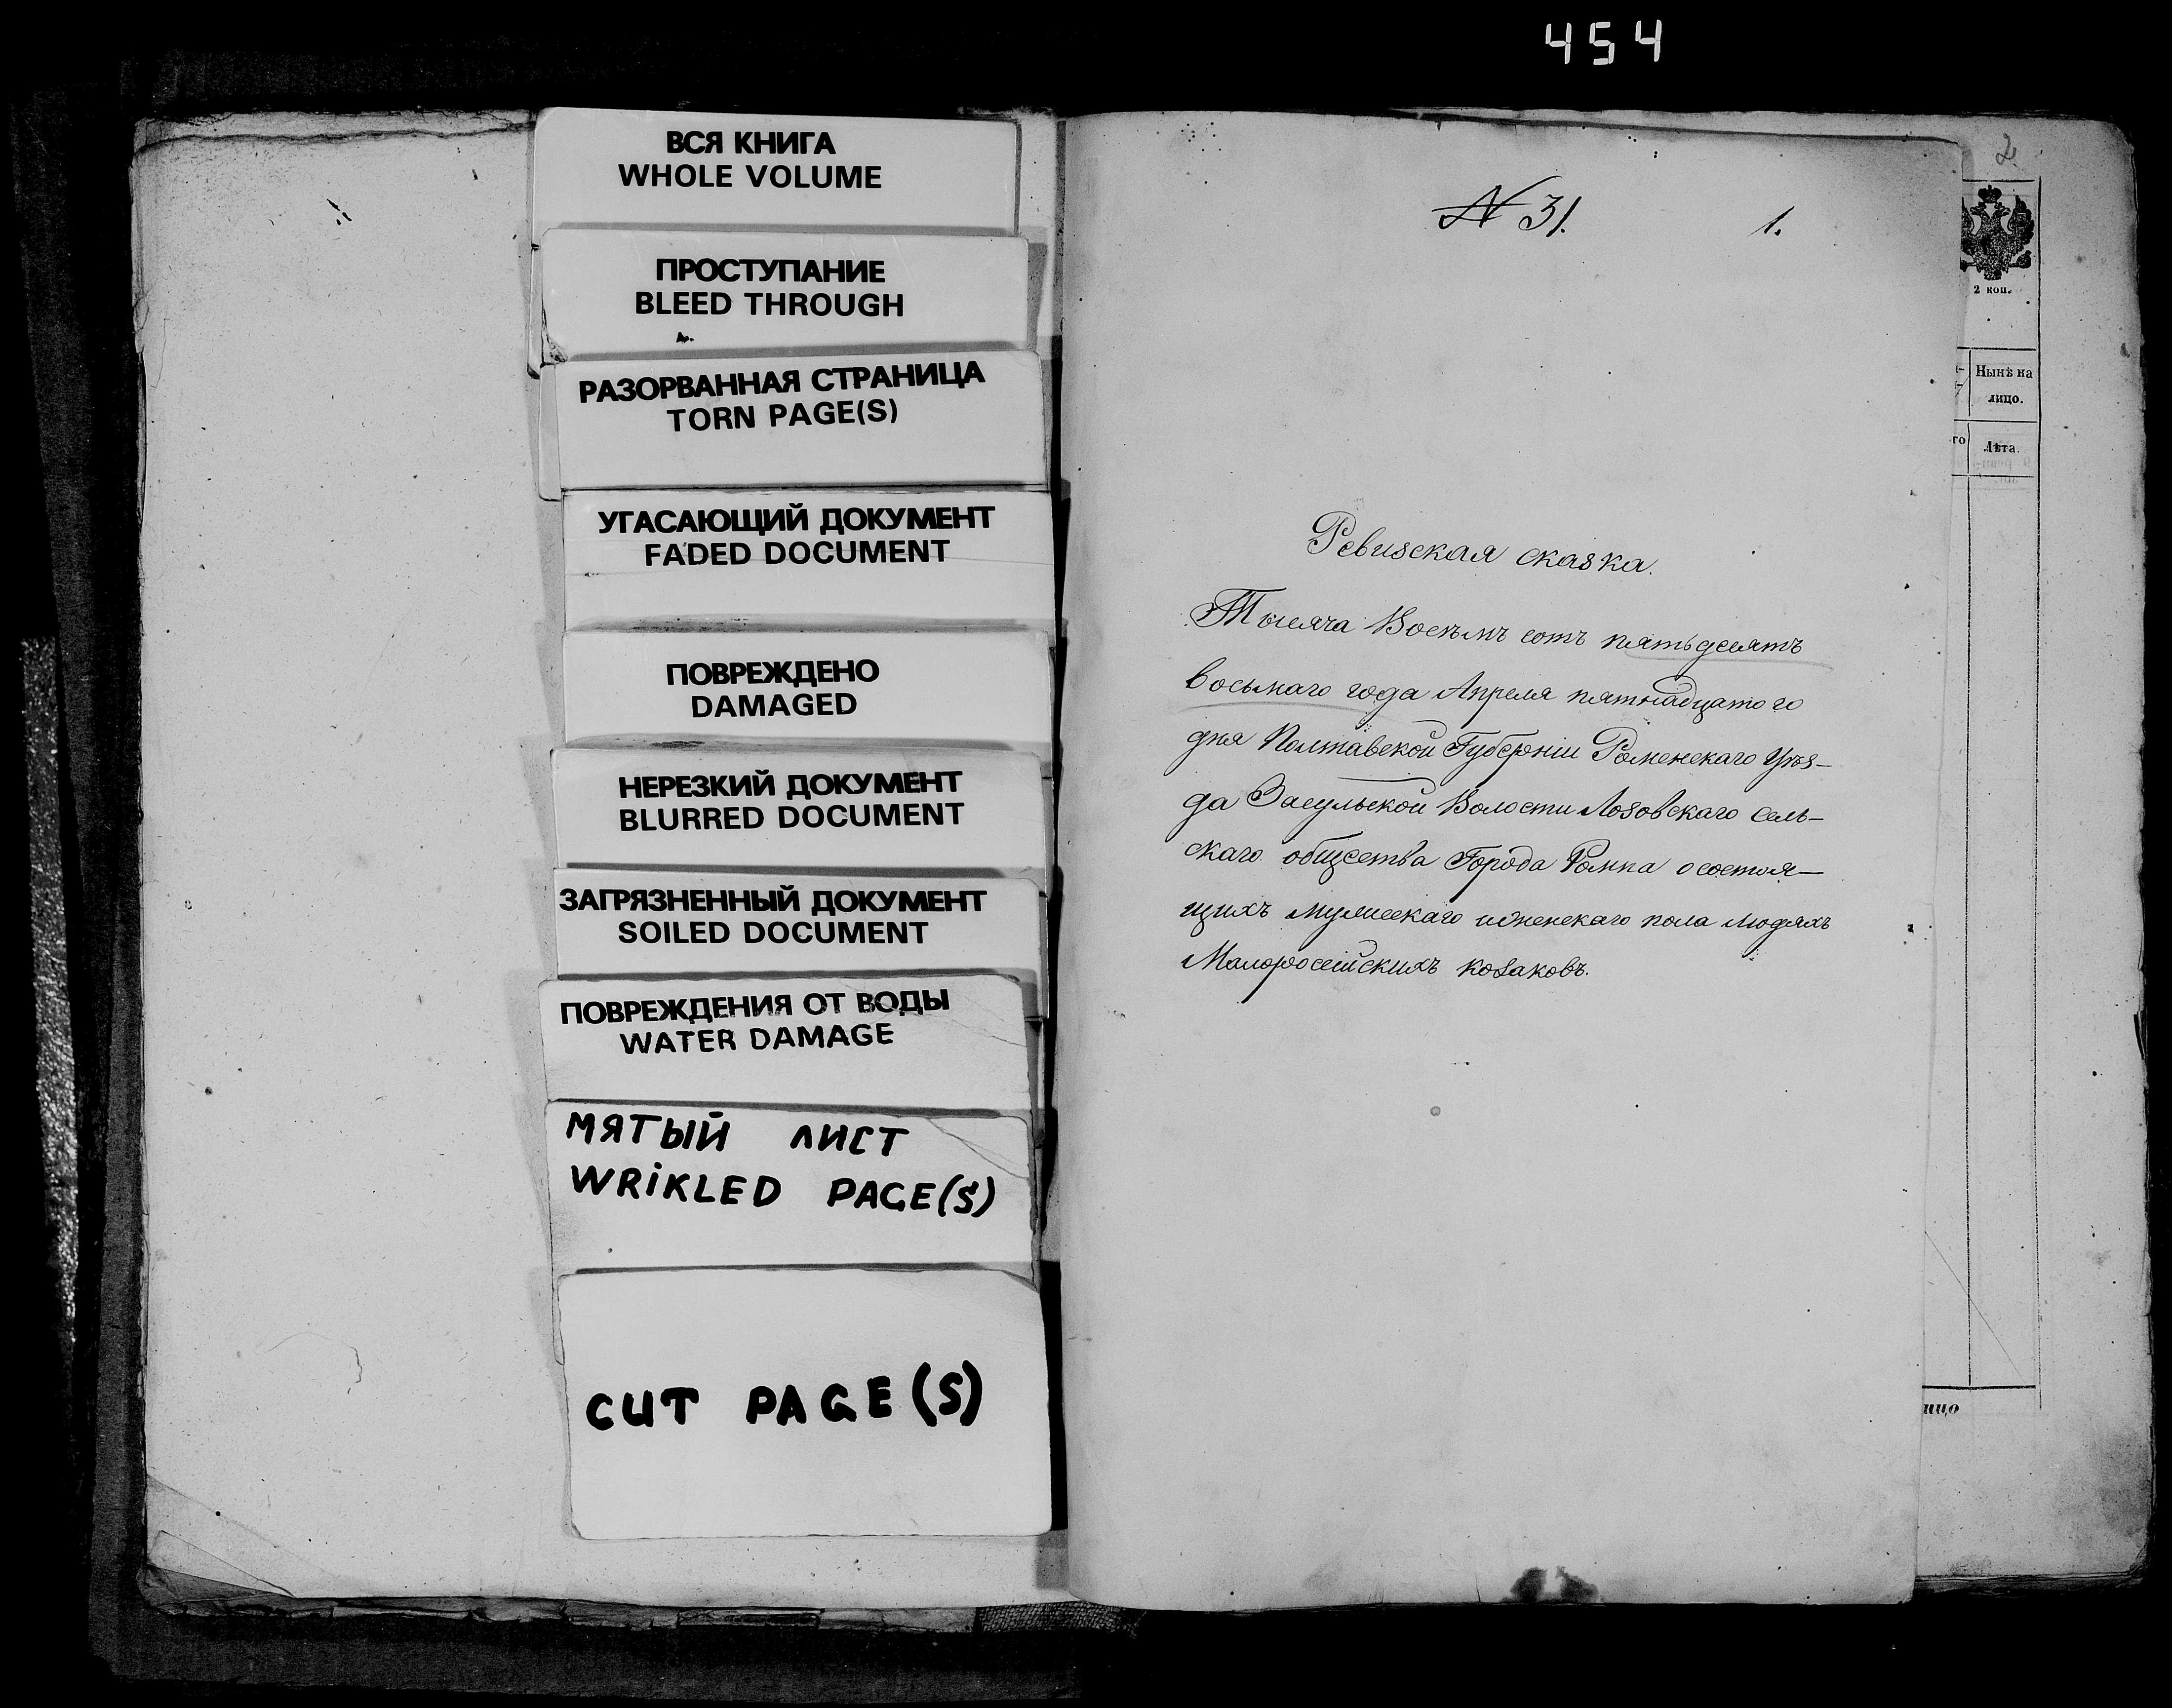 454
ВСЯ КНИГА
WHOLE VOLUME
ПРОСТУПАНИЕ
BLEED THROUGH
РАЗОРВАННАЯ СТРАНИЦА
TORN PAGE(S)
УГАСАЮЩИЙ ДОКУМЕНТ
FADED DOCUMENT
ПОВРЕЖДЕНО
DAMAGED
НЕРЕЗКИЙ ДОКУМЕНТ
BLURRED DOCUMENT
ЗАГРЯЗНЕННЫЙ ДОКУМЕНТ
SOILED DOCUMENT
ПОВРЕЖДЕНИЯ ОТ ВОДЫ
WATER DAMAGE
МЯТЫЙ ЛИСТ
WRIKLED PAGE(S)
CUT PAGE(S)
N 31. 1.
Ревизская сказка.
Тысяча Восемъ сотъ пятьдесятъ
восьмаго года Апреля пятнадцатого
дня Полтавской Губерніи Роменскаго Уѣз-
да Засульской Волости Лозовскаго Сель-
скаго общества Города Ромна о состоя-
щихъ мужескаго и женскаго пола людяхъ
Малороссійскихъ козаковъ.
2
2 коп.
Нынѣ на
лицо.
го
Лѣта.
лицо